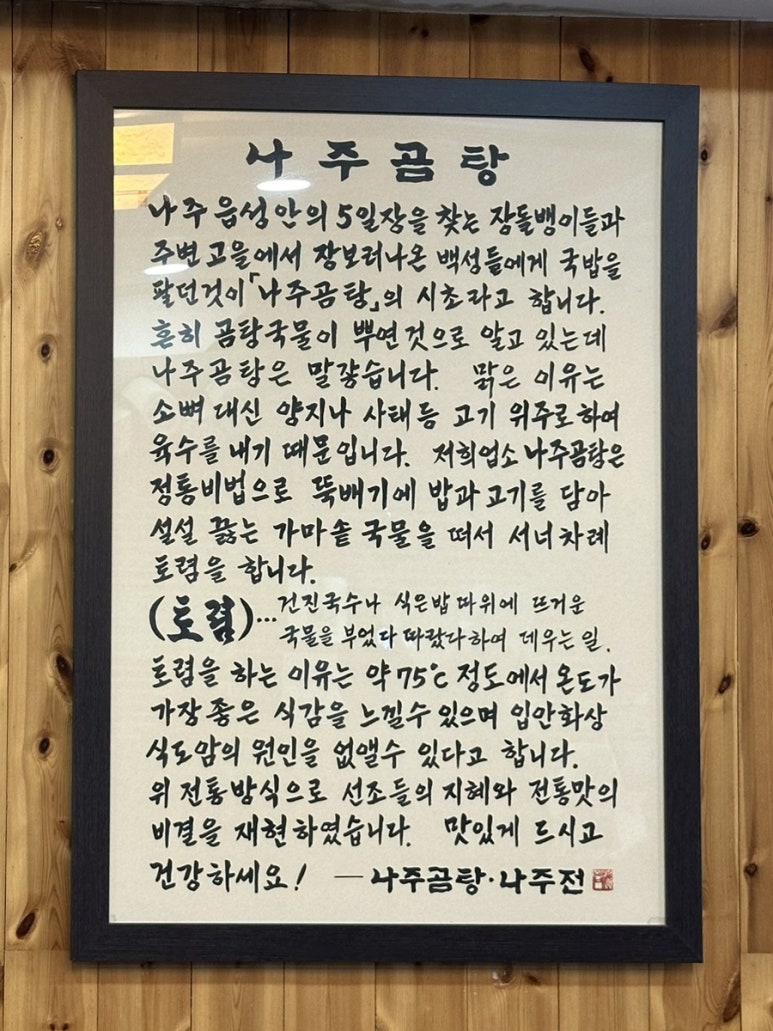 나주곰탕
나주읍성안의 5일장을 찾는 장돌뱅이들과
주변고을에서 장보러나온 백성들에게 국밥을
팔던것이「나주곰탕」의 시초라고 합니다.
흔히 곰탕국물이 뿌연것으로 알고 있는데
나주곰탕은 말갛습니다. 맑은 이유는
소뼈 대신 양지나 사태등 고기 위주로하여
육수를 내기 때문입니다. 저희업소 나주곰탕은
정통비법으로 뚝배기에 밥과 고기를 담아
설설 끓는 가마솥 국물을 떠서 서너차례
토렴을 합니다.
(토렴)…건진국수나 식은밥 따위에 뜨거운
국물을 부었다 따랐다하여 데우는 일.
토렴을 하는 이유는 약 75℃ 정도에서 온도가
가장 좋은 식감을 느낄수 있으며 입안화상
식도암의 원인을 없앨수 있다고 합니다.
위 전통방식으로 선조들의 지혜와 전통맛의
비결을 재현하였습니다. 맛있게 드시고
건강하세요! ―나주곰탕·나주전